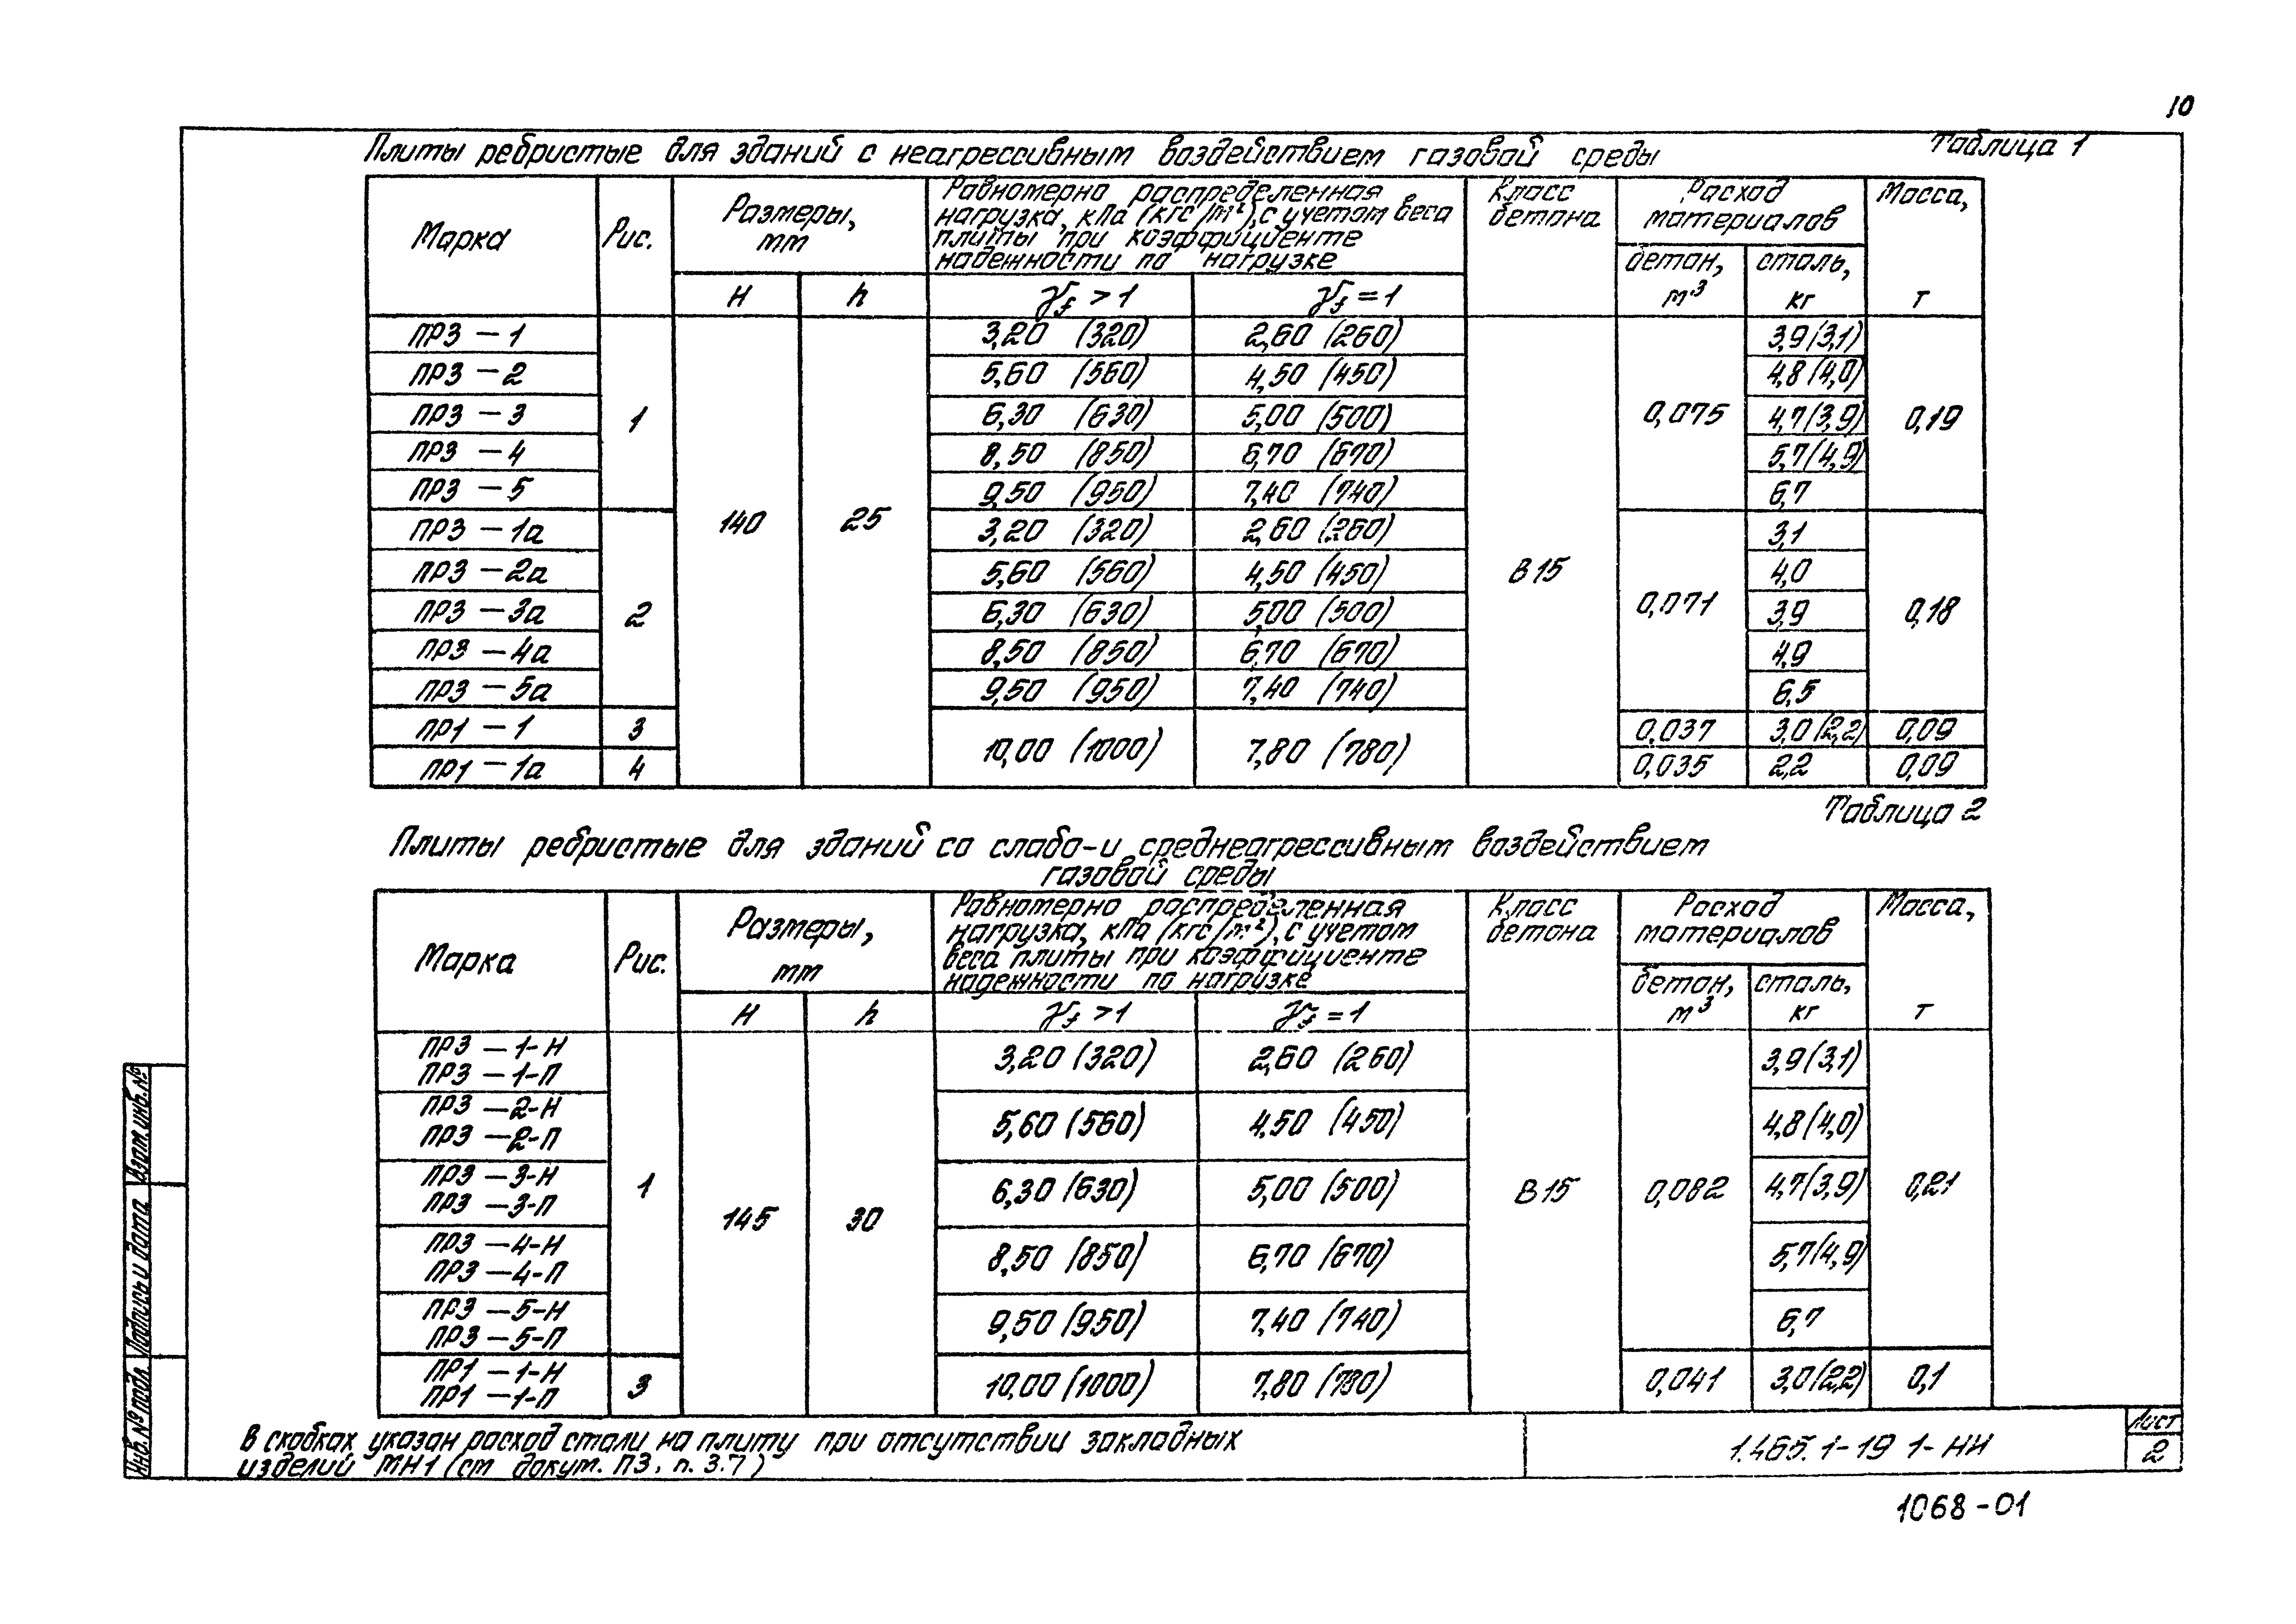 10
Плиты ребристые для зданий с неагрессивным воздействием газовой среды
Таблица 1
Марка
Рис.
Размеры, мм
H
h
Равномерно распределенная
нагрузка, кПа (кгс/м²), с учетом веса
плиты при коэффициенте
надежности по нагрузке
γf > 1
γf = 1
Класс бетона
Расход материалов
бетон, м³
сталь, кг
Масса, т
ПР3 – 1 1 140 25 3,20 (320) 2,60 (260) В15 0,075 3,9(3,1) 0,19
ПР3 – 2 5,60 (560) 4,50 (450) 4,8(4,0)
ПР3 – 3 6,30 (630) 5,00 (500) 4,7(3,9)
ПР3 – 4 8,50 (850) 6,70 (670) 5,7(4,9)
ПР3 – 5 9,50 (950) 7,40 (740) 6,7
ПР3 – 1а 2 3,20 (320) 2,60 (260) 0,071 3,1 0,18
ПР3 – 2а 5,60 (560) 4,50 (450) 4,0
ПР3 – 3а 6,30 (630) 5,00 (500) 3,9
ПР3 – 4а 8,50 (850) 6,70 (670) 4,9
ПР3 – 5а 9,50 (950) 7,40 (740) 6,5
ПР1 – 1 3 10,00 (1000) 7,80 (780) 0,037 3,0(2,2) 0,09
ПР1 – 1а 4 0,035 2,2 0,09
Таблица 2
Плиты ребристые для зданий со слабо-и среднеагрессивным воздействием
газовой среды
Марка
Рис.
Размеры, мм
H
h
Равномерно распределенная
нагрузка, кПа (кгс/м²), с учетом
веса плиты при коэффициенте
надежности по нагрузке
γf > 1
γf = 1
Класс бетона
Расход материалов
бетон, м³
сталь, кг
Масса, т
ПР3 – 1-Н 1 145 30 3,20 (320) 2,60 (260) В15 0,082 3,9(3,1) 0,21
ПР3 – 1-П
ПР3 – 2-Н 5,60 (560) 4,50 (450) 4,8(4,0)
ПР3 – 2-П
ПР3 – 3-Н 6,30 (630) 5,00 (500) 4,7(3,9)
ПР3 – 3-П
ПР3 – 4-Н 8,50 (850) 6,70 (670) 5,7(4,9)
ПР3 – 4-П
ПР3 – 5-Н 9,50 (950) 7,40 (740) 6,7
ПР3 – 5-П
ПР1 – 1-Н 3 10,00 (1000) 7,80 (780) 0,041 3,0(2,2) 0,1
ПР1 – 1-П
В скобках указан расход стали на плиту при отсутствии закладных
изделий МН1 (см докум. ПЗ, п. 3.7)
1.465.1-19 1-НИ
Лист
2
1068-01
Взам.инв.№
Подпись и дата
Инв.№подл.